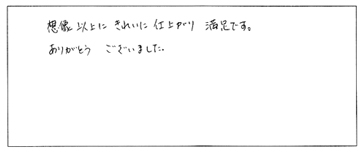 想像以上に きれいに 仕上がり 満足です。
ありがとう ございました。